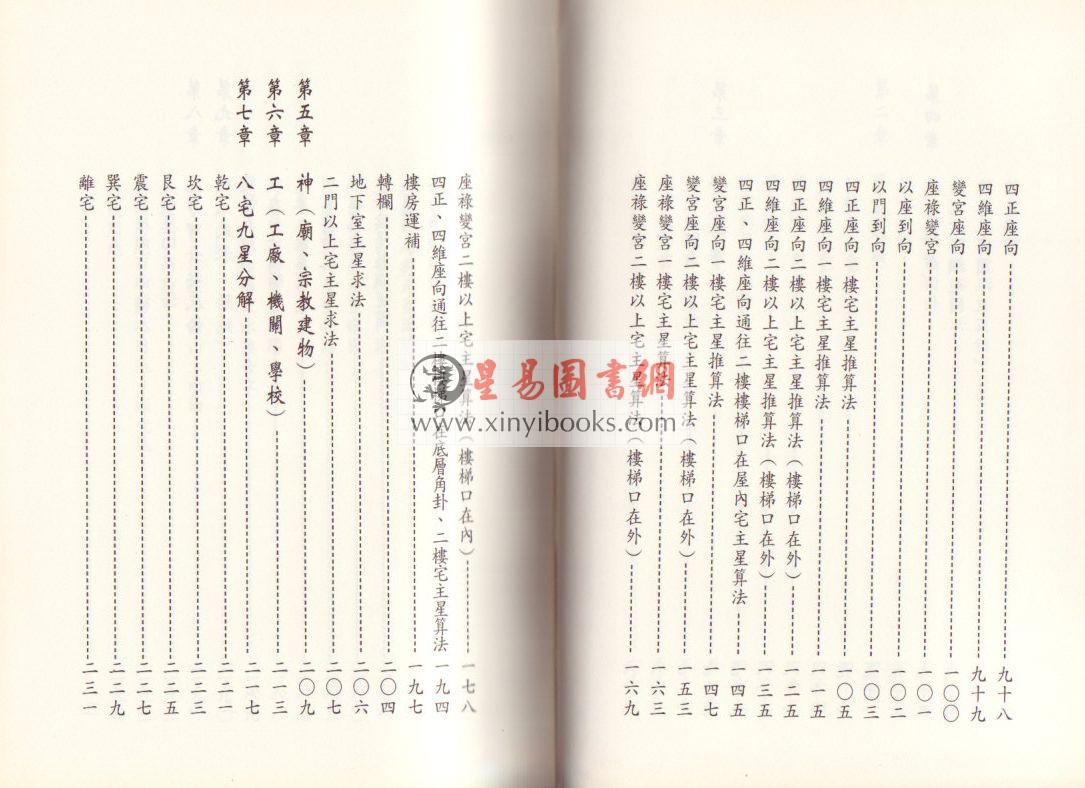 四正座向 九十八
四維座向 九十九
變宮座向 一〇〇
座祿變宮 一〇一
以座到向 一〇二
以門到向 一〇三
四正座向一樓宅主星推算法 一〇五
四維座向一樓宅主星推算法 一一五
四正座向二樓以上宅主星推算法（樓梯口在外） 一二五
四維座向二樓以上宅主星推算法（樓梯口在外） 一三五
四正、四維座向通往二樓樓梯口在屋內宅主星算法 一四五
變宮座向一樓宅主星推算法 一四七
變宮座向二樓以上宅主星算法（樓梯口在外） 一五三
座祿變宮一樓宅主星算法 一六三
座祿變宮二樓以上宅主星算法（樓梯口在外） 一六九
座祿變宮二樓以上宅主星算法（樓梯口在內） 一七八
四正、四維座向通往二樓樓梯口在底層角卦、二樓宅主星算法 一九四
樓房運補 一九七
轉欄 二〇四
地下室主星求法 二〇六
二門以上宅主星求法 二〇七
第五章 神（廟、宗教建物） 二〇九
第六章 工（工廠、機關、學校） 二一三
第七章 八宅九星分解 二一七
乾宅 二二一
坎宅 二二三
艮宅 二二五
震宅 二二七
巽宅 二二九
離宅 二三一
星易圖書網
www.xinyibooks.com